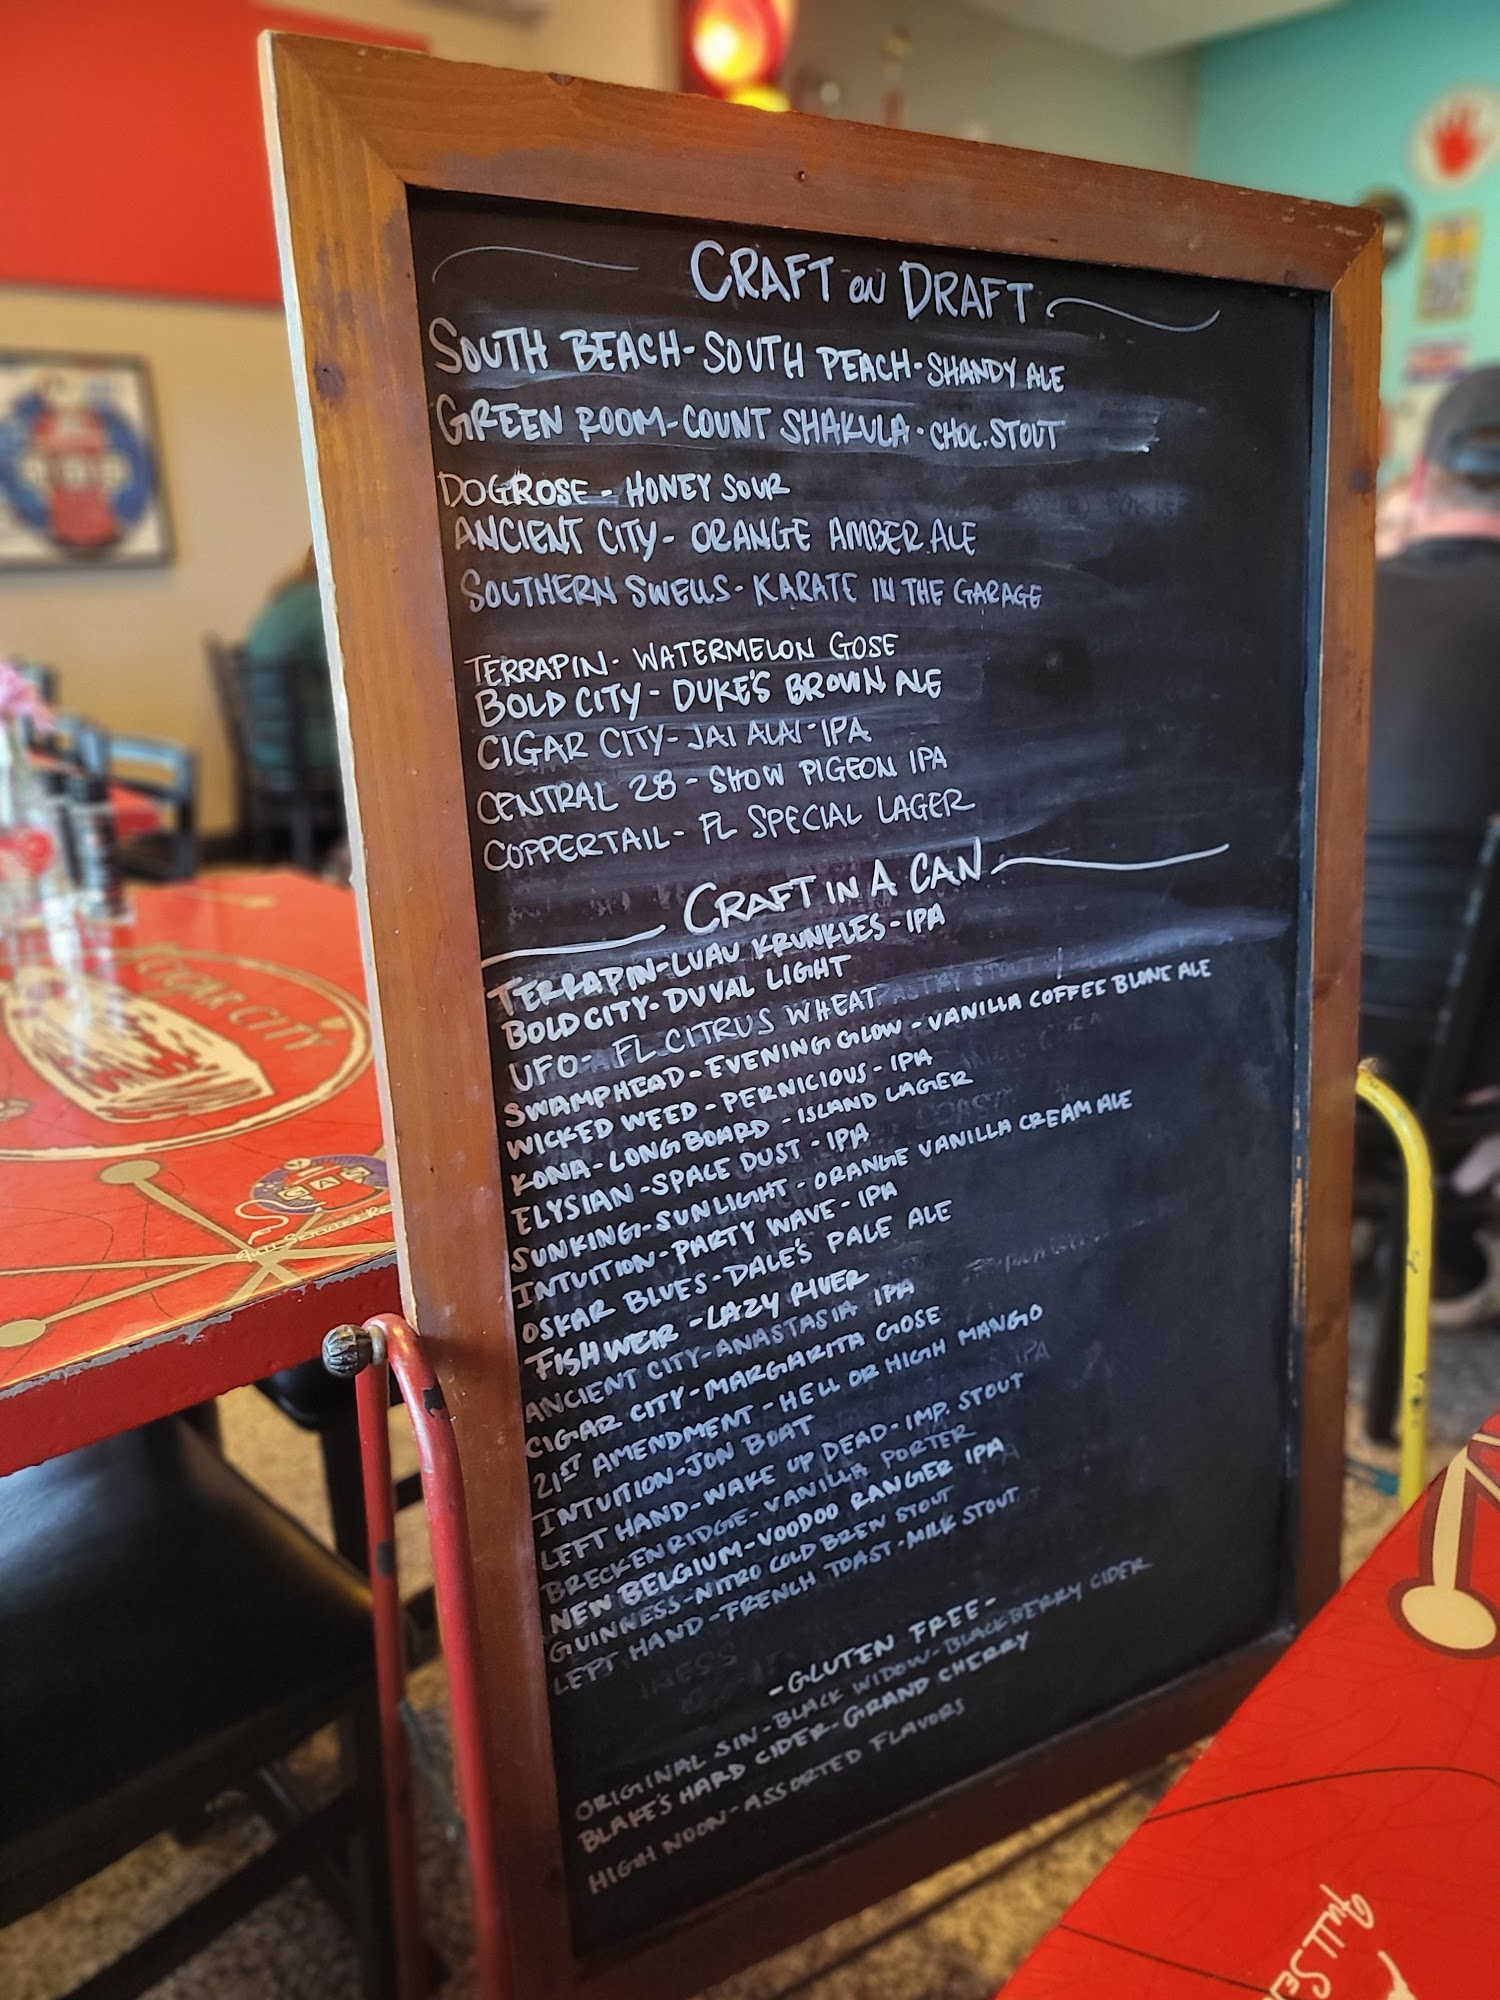 CRAFT ON DRAFT
SOUTH BEACH - SOUTH PEACH - SHANDY ALE
GREEN ROOM - COUNT SHAKULA - CHOC. STOUT
DOGROSE - HONEY SOUR
ANCIENT CITY - ORANGE AMBER ALE
SOUTHERN SWELLS - KARATE IN THE GARAGE
TERRAPIN - WATERMELON GOSE
BOLD CITY - DUKE'S BROWN ALE
CIGAR CITY - JAI ALAI - IPA
CENTRAL 28 - SHOW PIGEON IPA
COPPERTAIL - FL SPECIAL LAGER
CRAFT IN A CAN
TERRAPIN - LUAU KRUNKLES - IPA
BOLD CITY - DUVAL LIGHT
UFO - FL CITRUS WHEAT
SWAMPHEAD - EVENING GLOW - VANILLA COFFEE BLONE ALE
WICKED WEED - PERNICIOUS - IPA
KONA - LONGBOARD - ISLAND LAGER
ELYSIAN - SPACE DUST - IPA
SUNKING - SUNLIGHT - ORANGE VANILLA CREAM ALE
INTUITION - PARTY WAVE - IPA
OSKAR BLUES - DALE'S PALE ALE
FISHWEIR - LAZY RIVER
ANCIENT CITY - ANASTASIA IPA
CIGAR CITY - MARGARITA GOSE
21ST AMENDMENT - HELL OR HIGH MANGO
INTUITION - JON BOAT
LEFT HAND - WAKE UP DEAD - IMP. STOUT
BRECKENRIDGE - VANILLA PORTER
NEW BELGIUM - VOODOO RANGER IPA
GUINNESS - NITRO COLD BREW STOUT
LEFT HAND - FRENCH TOAST - MILK STOUT
- GLUTEN FREE -
ORIGINAL SIN - BLACK WIDOW - BLACKBERRY CIDER
BLAKE'S HARD CIDER - GRAND CHERRY
HIGH NOON - ASSORTED FLAVORS